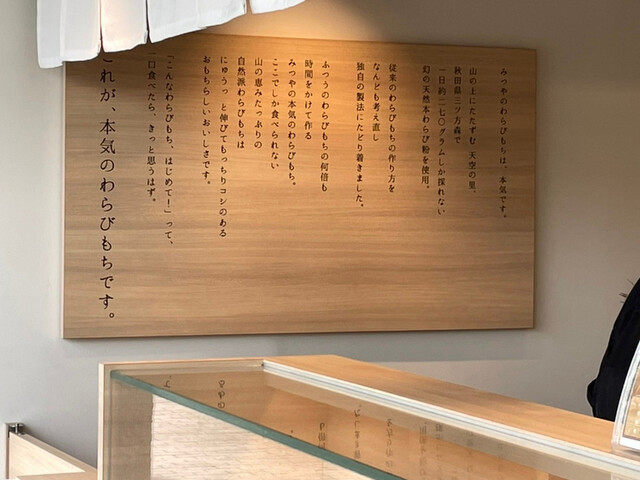 みつやのわらびもちは、本気です。
山の上にたたずむ 天空の里、
秋田県三ツ方森で
一日約一七〇グラムしか採れない
幻の天然本わらび粉を使用。
従来のわらびもちの作り方を
なんども考え直し
独自の製法にたどり着きました。
ふつうのわらびもちの何倍も
時間をかけて作る
みつやの本気のわらびもち。
ここでしか食べられない
山の恵みたっぷりの
自然派わらびもちは
にゅうっ と伸びてもっちりコシのある
おもちらしいおいしさです。
「こんなわらびもち、はじめて!」って、
一口食べたら、きっと思うはず。
これが、本気のわらびもちです。